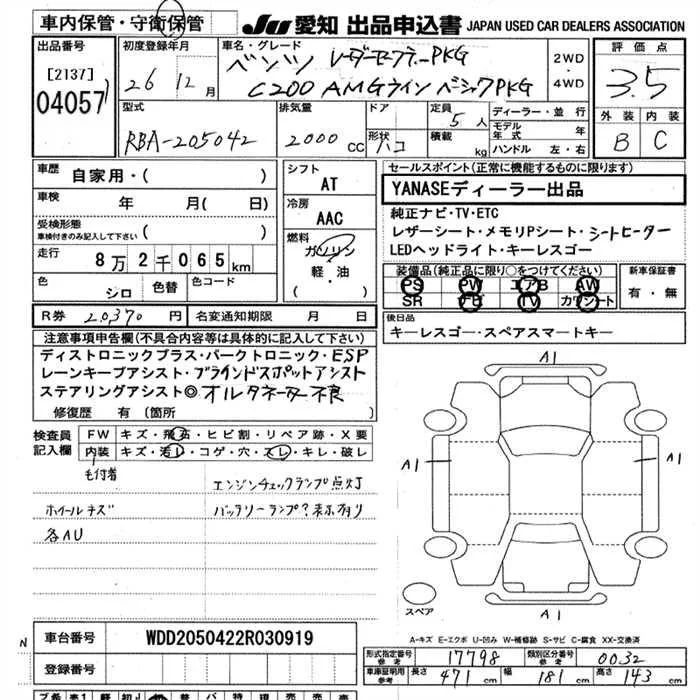 車内保管・守衛保管 JU 愛知 出品申込書 JAPAN USED CAR DEALERS ASSOCIATION
出品番号 初度登録年月 車名・グレード 評価点
[2137] 26 12月 ベンツ レーダーセーフティーPKG 2WD・4WD 3.5
04057 C200 AMGライン ベーシックPKG
型式 排気量 ドア 定員 5人 ディーラー・並行 外装 内装
RBA-205042 2000cc 形状 ハコ 積載 kg モデル年式 年 B C
ハンドル 左・右
車歴 自家用・( ) シフト AT セールスポイント(正常に機能するものに限ります)
車検 年 月( 日) 冷房 AAC YANASEディーラー出品
受検形態 車検付きのみ記入して下さい ( ) 純正ナビ・TV・ETC
燃料 ガソリン 軽・油 ( ) レザーシート・メモリPシート・シートヒーター
走行 8万2千065km LEDヘッドライト・キーレスゴー
色 シロ 色替 色コード 装備品(純正品に限り○をつけてください) 新車保証書
PS PW エアB AW 有・無
SR ナビ TV カワシート
R券 20,370円 名変通知期限 月 日 後日品
キーレスゴー・スペアスマートキー
注意事項申告欄(不具合内容等は具体的に記入して下さい)
ディストロニックプラス・パークトロニック・ESP
レーンキープアシスト・ブラインドスポットアシスト
ステアリングアシスト◎オルタネーター不良
修復歴 有(箇所
検査員記入欄 FW キズ・飛石・ヒビ割・リペア跡・X要
内装 キズ・汚レ・コゲ・穴・スレ・キレ・破レ
毛付着 エンジンチェックランプ点灯
ホイールキズ バッテリーランプ?表示有り
各AU
A1
A1 A1
スペア A1
A-キズ E-エクボ U-凹み W-補修跡 S-サビ C-腐食 XX-交換済
N 車台番号 WDD2050422R030919
型式指定番号 参考 17798 類別区分番号 参考 0032
登録番号 車庫証明用 参考 長さ 471 cm 幅 181 cm 高さ 143 cm